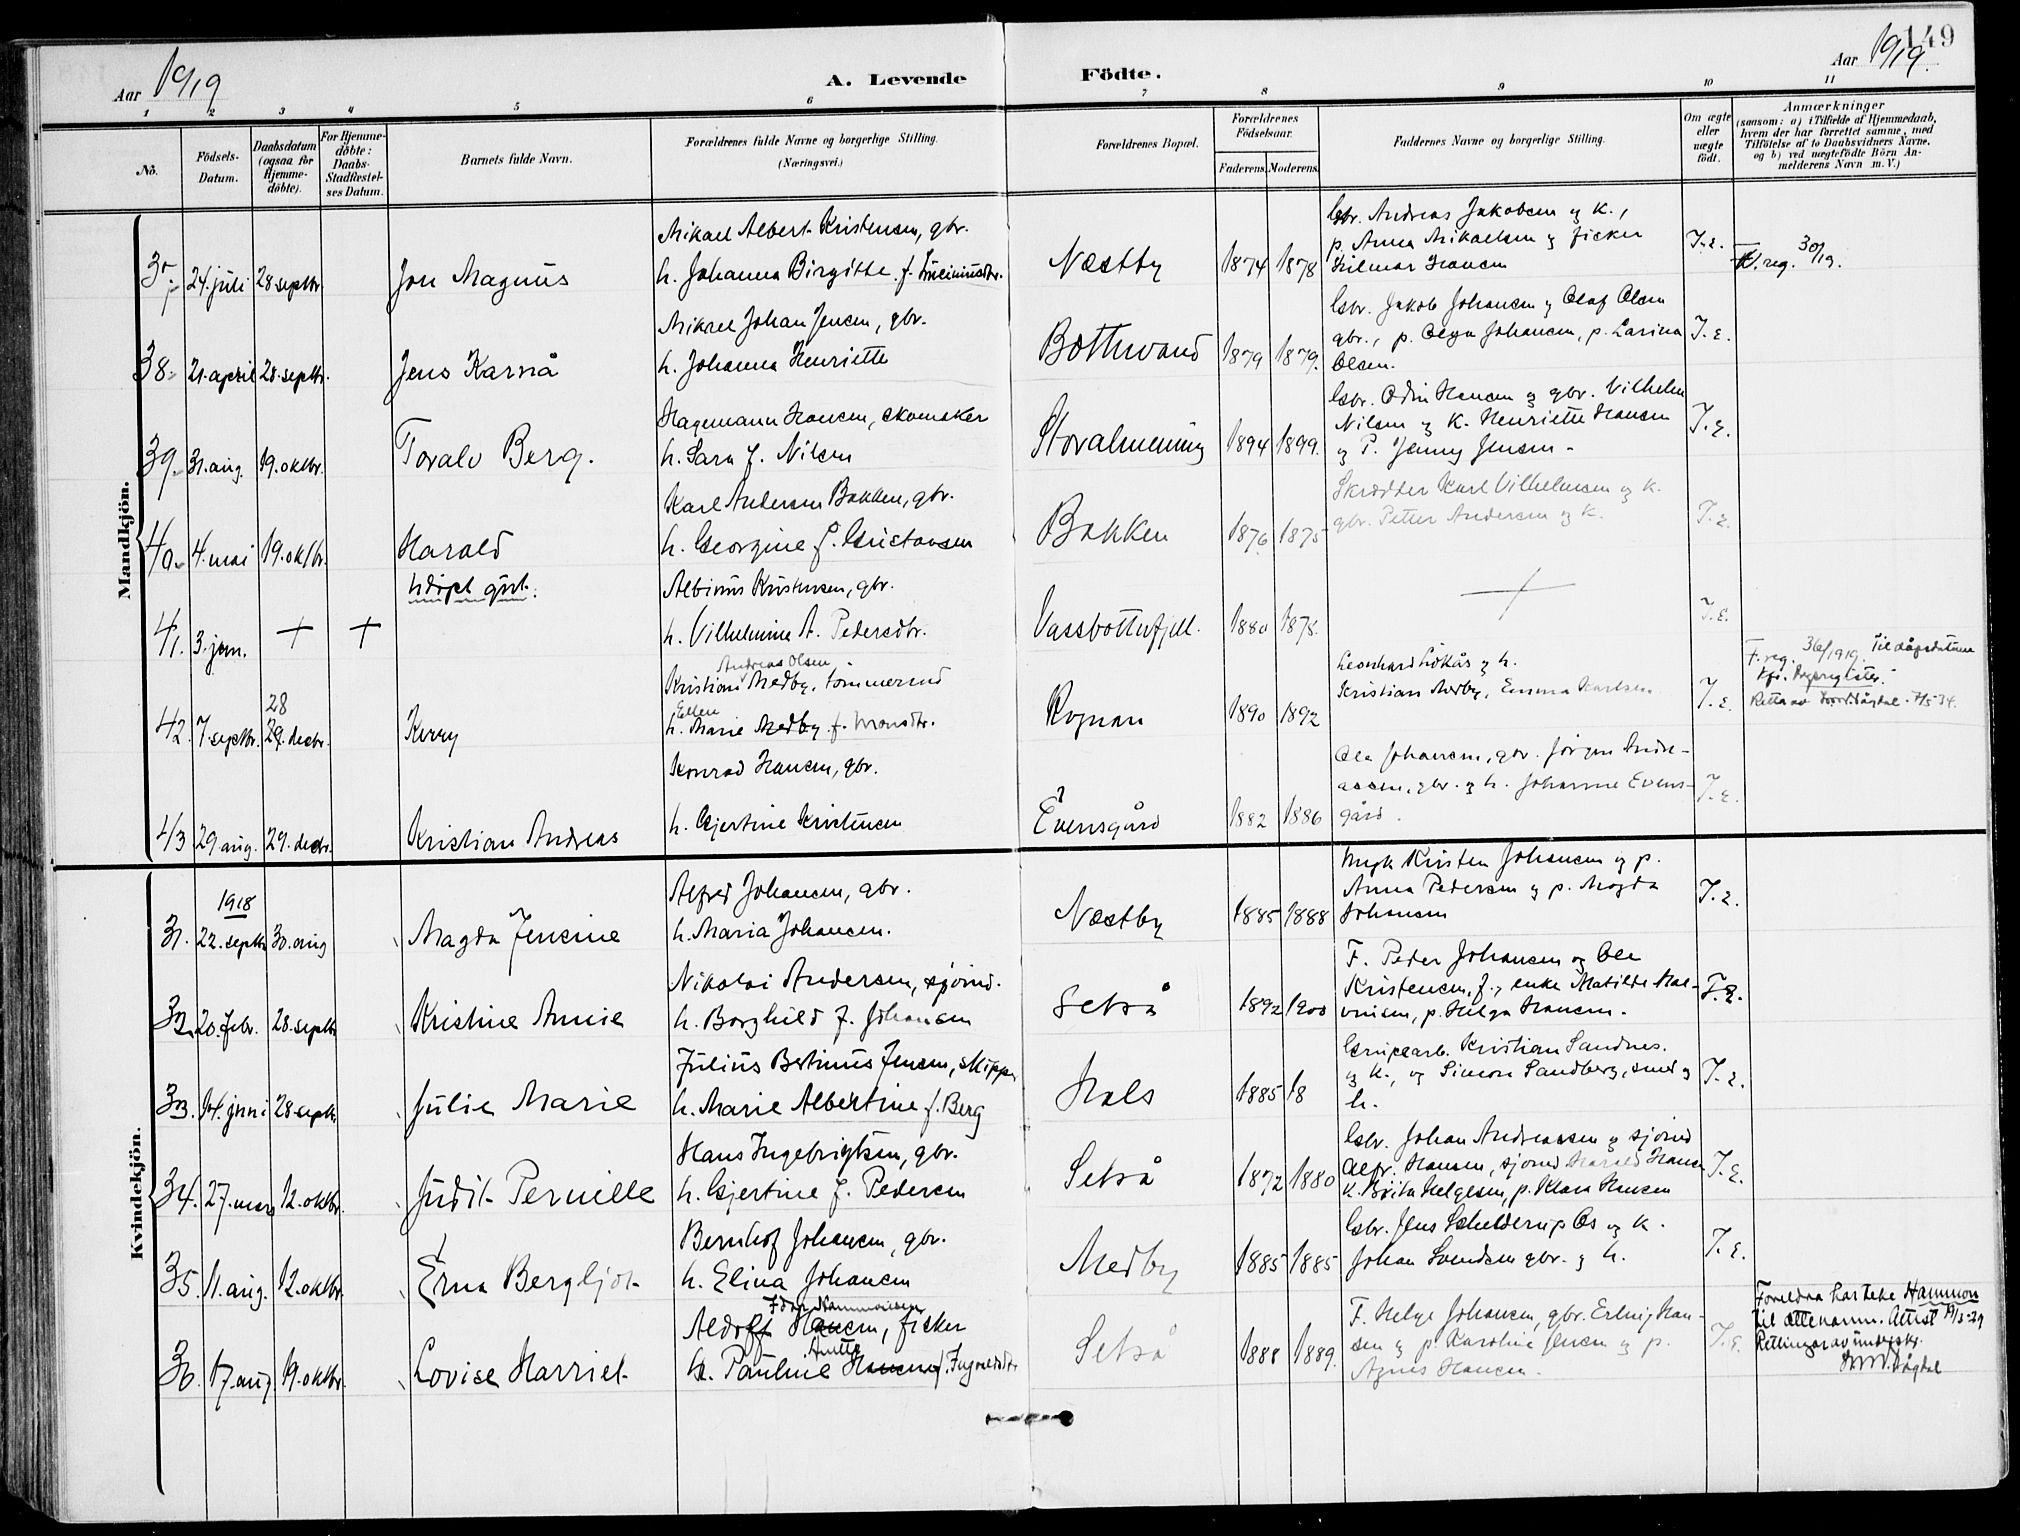 149
Aar 1919
A. Levende Födte.
Aar 1919.
1 2 3 4 5 6 7 8 9 10 11
No.
Födsels-Datum.
Daabsdatum (ogsaa for Hjemme-döbte).
For Hjemme-döbte: Daabs-Stadfæstel-ses Datum.
Barnets fulde Navn.
Forældrenes fulde Navne og borgerlige Stilling.
(Næringsvei.)
Forældrenes Bopæl.
Forældrenes Födselsaar.
Faderens. Moderens.
Faddernes Navne og borgerlige Stilling.
Om ægte eller uægte födt.
Anmærkninger
(saasom: a) i Tilfælde af Hjemmedaab,
hvem der har forrettet samme, med
Tilföielse af to Daabsvidners Navne,
og b) ved uægtefödte Börn An-
melderens Navn m. V.)
Mandkjön.
24. juli 28 septbr. Jon Magnus
Mikael Albert Kristensen, gbr.
h. Johanna Birgitte f.
Næstby 1874 1878
Gbr. Andreas Jakobsen og k.,
p. Anna Mikaelsen og fisker
Hilmar Hansen
I. E.
F. reg. 30/19.
38. 21. april 28. septbr. Jens Karnå
Mikael Johan Jensen, gbr.
h. Johanna Henriette
Bothvand 1879 1879.
Gbr. Jakob Johansen og Olaf Olsen
gbr., p. Olga Johansen, p. Larina
Olsen.
I. E.
39. 31. aug. 19. oktbr. Toralv Berg.
Hagemann Hansen, skomaker
h. Sara f. Nilsen
Storalmenning 1894 1899.
Gbr. Odin Hansen og gbr. Vilhelm
Nilsen og k. Henriette Hansen
og P. Jenny Jensen -
I. E.
40. 4. mai 19. oktbr. Harald
Karl Andersen Bakken, gbr.
h. Georgine f. Gustavsen
Bakken 1876 1875
Skrædder Karl Vilhelmsen og k.
gbr. Petter Andersen og k.
I. E.
41. 3. jan. + + Udöpt gut.
Albinus Kristensen, gbr.
h. Vilhelmine A. Pedersdtr.
Vassbottnfjell. 1880 1875.
+
I. E.
42. 7. septbr. 28 29. decbr. Kerry
Andreas Olsen
Kristian Medby, tömmermd
Ellen
h. Marie Medby f. Monsdtr.
Rognan 1890 1892
Leonhard Lidkås og h.
Kristian Medby, Emma Karlsen.
I. E.
F. reg. 36/1919. Til dåpsdatum
43. 29 aug. 29. decbr. Kristian Andreas
Konrad Hansen, gbr.
h. Gjertine Kristensen
Evensgård 1882 1886
Ole Johansen, gbr. Jörgen Andre-
assen, gbr. og h. Johanne Evens-
gård.
I. E.
Kvindekjön.
31. 1918 22. septbr. 30. aug Magda Jensine
Alfred Johansen, gbr.
h. Maria Johansen.
Næstby 1885 1888
Ungk. Kristen Johansen og p.
Anna Pedersen og p. Magda
Johansen
I. E.
32. 20. febr. 28. septbr Kristine Annie
Nikolai Andersen, sjömd.
h. Borghild f. Johansen
Setså 1892 1900
F. Peder Johansen og Ole
Kristensen, f., enke Matilde Hal-
vorsen, p. Helga Hansen.
I. E.
33. 14. juni 28 septbr. Julie Marie
Julius Bertinus Jensen, skipper
h. Marie Albertine f. Berg
Hals 1885 18
Grupearb. Kristian Sandnes.
og k., og Simon Sandberg, smed og
h.
I. E.
34. 27. mars 12. oktbr. Judit Pernille
Hans Ingebrigtsen, gbr.
h. Gjertine f. Pedersen
Setså 1872 1880
Gbr. Johan Andreassen og sjömd
Alfr. Hansen, sjömd Harald Hansen
k. Brita Helgesen, p. Klara Hansen
I. E.
35. 11. aug. 12. oktbr. Erna Bergljot
Bernhof Johansen, gbr.
h. Elina Johansen
Medby 1885 1885
Gbr. Jens Schelderup Os og k.
Johan Svendsen gbr. og h.
I. E.
36. 17. aug 19. oktbr. Lovise Harriet
Aldoff Hansen, fisker
Anette
h. Pauline Hansen f.
Setså 1888 1889.
F. Helge Johansen, gbr. Erling Han-
sen og p. Karoline Jensen og p.
Agnes Hansen.
I. E.
Foreldra har teke Hammon
til ættenamn. Attest